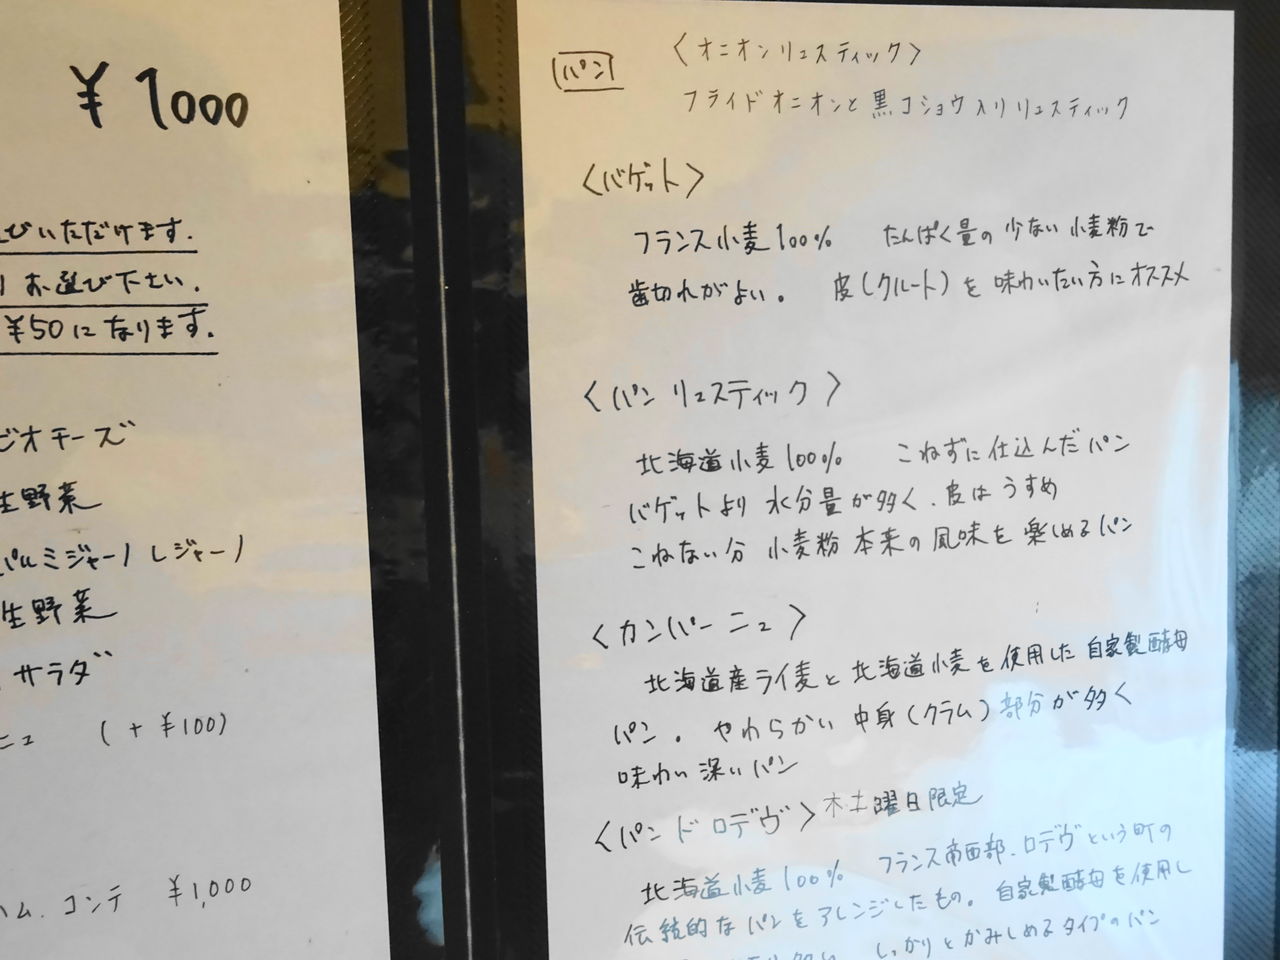 ¥1000
びいただけます.
お選び下さい.
¥50になります.
ビオチーズ
生野菜
パルミジャーノレジャーノ
生野菜
サラダ
ニュ (+¥100)
ハム.コンテ ¥1,000
パン 〈オニオンリュスティック〉
フライドオニオンと黒コショウ入りリュスティック
〈バゲット〉
フランス小麦100% たんぱく量の少ない小麦粉で
歯切れがよい。 皮(クルート)を味わいたい方にオススメ
〈パン リュスティック〉
北海道小麦100% こねずに仕込んだパン
バゲットより水分量が多く、皮はうすめ
こねない分 小麦粉本来の風味を楽しめるパン
〈カンパーニュ〉
北海道産ライ麦と北海道小麦を使用した自家製酵母
パン。やわらかい中身(クラム)部分が多く
味わい深いパン
〈パン ド ロデヴ〉木土曜日限定
北海道小麦100% フランス南西部、ロデヴという町の
伝統的なパンをアレンジしたもの。自家製酵母を使用し
しっかりとかみしめるタイプのパン